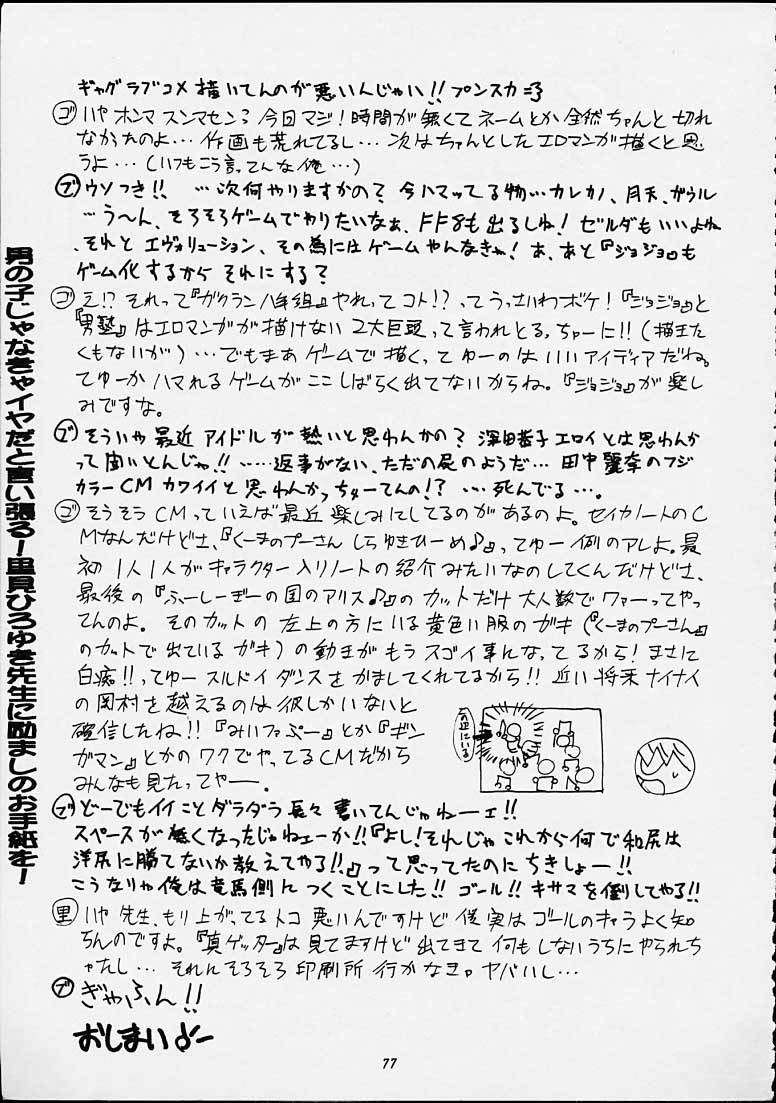 ギャグラブコメ描いてんのが悪いんじゃい!!プンスカ=3
ゴ いやホンマスンマセン?今日マジ!時間が無くてネームとか全然ちゃんと切れ
なかったのよ…作画も荒れてるし…次はちゃんとしたエロマンが描くと思
うよ…(いつもこう言ってんな俺…)
ブ ウソつき!!…次何やりますかの?今ハマッてる物…カレカノ、月天、ガウル
…う〜ん、そろそろゲームでやりたいなぁ、FF8も出るしね!ゼルダもいいよね
、それとエヴォリューション、その為にはゲームやんなきゃ!あ、あと『ジョジョ』も
ゲーム化するからそれにする?
ゴ え!?それって『ガクラン八年組』やれってコト!?ってうっさいわボケ!『ジョジョ』と
『男塾』はエロマンガが描けない2大巨頭って言われとる、ちゅーに!!(描きた
くもないが)…でもまあゲームで描くってゆーのはいいアイディアだね。
てゆーかハマれるゲームがここしばらく出てないからね。『ジョジョ』が楽し
みですな。
ブ そういや最近アイドルが熱いと思わんかの?深田恭子エロイとは思わんか
って聞いとんじゃ!!……返事がない、ただの屍のようだ…田中麗奈のフジ
カラーCMカワイイと思わんかっちゅーてんの!?…死んでる…。
ゴ そうそうCMっていえば最近楽しみにしてるのがあるのよ。セイカノートのC
Mなんだけどさ、『くーまのプーさんしらゆきひーめ♪』ってゆー例のアレよ。最
初1人1人がキャラクター入りノートの紹介みたいなのしてくんだけどさ、
最後の『ふーしーぎーの国のアリス♪』のカットだけ大人数でワァーってやっ
てんのよ。そのカットの左上の方にいる黄色い服のガキ(『くーまのプーさん』
のカットで出ているガキ)の動きがもうスゴイ事んなってるから!まさに
白痴!!ってゆースルドイダンスをかましてくれてるから!!近い将来ナイナイ
の岡村を越えるのは彼しかいないと
確信したね!!『みいファぷー』とか『ギン
ガマン』とかのワクでやってるCMだから
みんなも見たってやー。
この辺にいる
ブ どーでもイイことダラダラ長々書いてんじゃねーェ!!
スペースが無くなったじゃねェーか!!『よし!それじゃこれから何で和尻は
洋尻に勝てないか教えてやる!!』って思ってたのにちきしょー!!
こうなりゃ俺は竜馬側につくことにした!!ゴール!!キサマを倒してやる!!
里 いや先生、もり上がってるトコ悪いんですけど僕実はゴールのキャラよく知
らんのですよ。『真ゲッター』は見てますけど出てきて何もしないうちにやられち
ゃたし…それにそろそろ印刷所行かなきゃヤバいし…
ブ ぎゃふん!!
おしまい♪ー
男の子じゃなきゃイヤだと言い張る!里見ひろゆき先生に励ましのお手紙を!
77